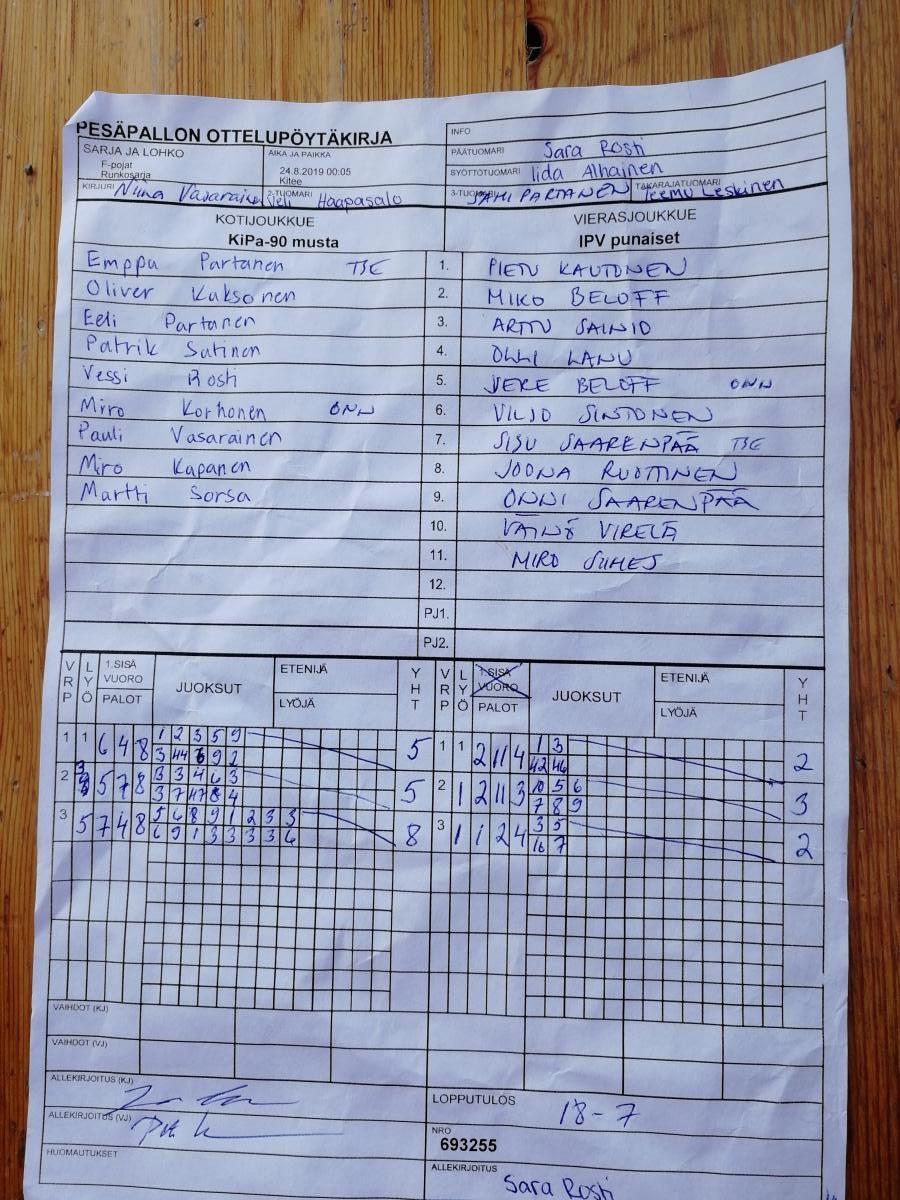 PESÄPALLON OTTELUPÖYTÄKIRJA
INFO
SARJA JA LOHKO
F-pojat
Runkosarja
AIKA JA PAIKKA
24.8.2019 00:05
Kitee
PÄÄTUOMARI Sara Rosti
SYÖTTÖTUOMARI Iida Alhainen
KIRJURI Niina Vasarainen
2-TUOMARI Veli Haapasalo
3-TUOMARI SAMI PARTANEN
TAKARAJATUOMARI Teemu Leskinen
KOTIJOUKKUE VIERASJOUKKUE
KiPa-90 musta IPV punaiset
Emppu Partanen TSE 1. PIETU KAUTONEN
Oliver Kuksonen 2. MIKO BELOFF
Eeli Partanen 3. ARTTU SAINIO
Patrik Sutinen 4. OLLI LANU
Vessi Rosti 5. VERE BELOFF ONN
Miro Korhonen ONN 6. VILJO SINTONEN
Pauli Vasarainen 7. SISU SAARENPÄÄ TSE
Miro Kapanen 8. JOONA RUOTTINEN
Martti Sorsa 9. ONNI SAARENPÄÄ
10. VÄINÖ VIRELÄ
11. MIRO
12.
PJ1.
PJ2.
VRP LYÖ 1.SISÄ VUORO PALOT JUOKSUT ETENIJÄ LYÖJÄ YHT VRP LYÖ 1.SISÄ VUORO PALOT JUOKSUT ETENIJÄ LYÖJÄ YHT
1 1 6 4 8 1 2 3 5 9 5 1 1 2 11 4 1 3 2
3 44 6 9 2 42 46
2 5 7 8 3 3 4 6 3 5 2 1 2 11 3 10 5 6 3
3 7 47 8 4 7 8 9
3 5 7 4 8 5 6 8 9 1 2 3 3 8 3 1 1 2 4 3 5 2
6 9 1 3 3 3 3 6 16 7
VAIHDOT (KJ)
VAIHDOT (VJ)
ALLEKIRJOITUS (KJ)
LOPPUTULOS 18-7
ALLEKIRJOITUS (VJ)
NRO
693255
HUOMAUTUKSET
ALLEKIRJOITUS
Sara Rosti